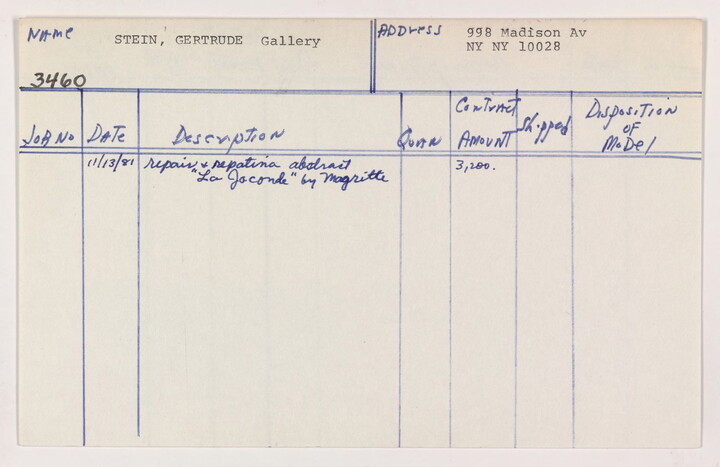 NAME STEIN, GERTRUDE Gallery ADDRESS 998 Madison Av
NY NY 10028
3460
JOB NO DATE Description QUAN CONTRACT AMOUNT Shipped DISPOSITION OF MODEL
11/13/81 repair & repatina abstract 3,200.
"La Joconde" by Magritte